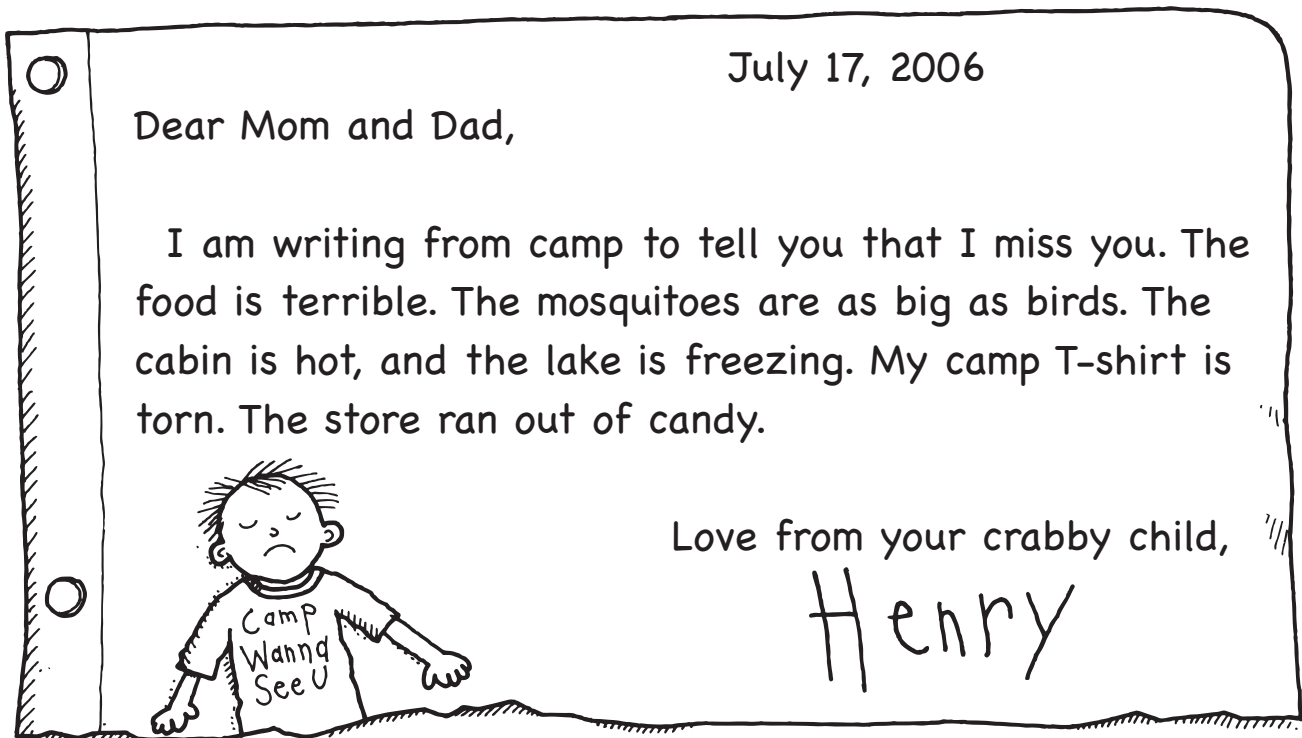 July 17, 2006
Dear Mom and Dad,
I am writing from camp to tell you that I miss you. The
food is terrible. The mosquitoes are as big as birds. The
cabin is hot, and the lake is freezing. My camp T-shirt is
torn. The store ran out of candy.
Love from your crabby child,
Henry
Camp
Wanna
See U